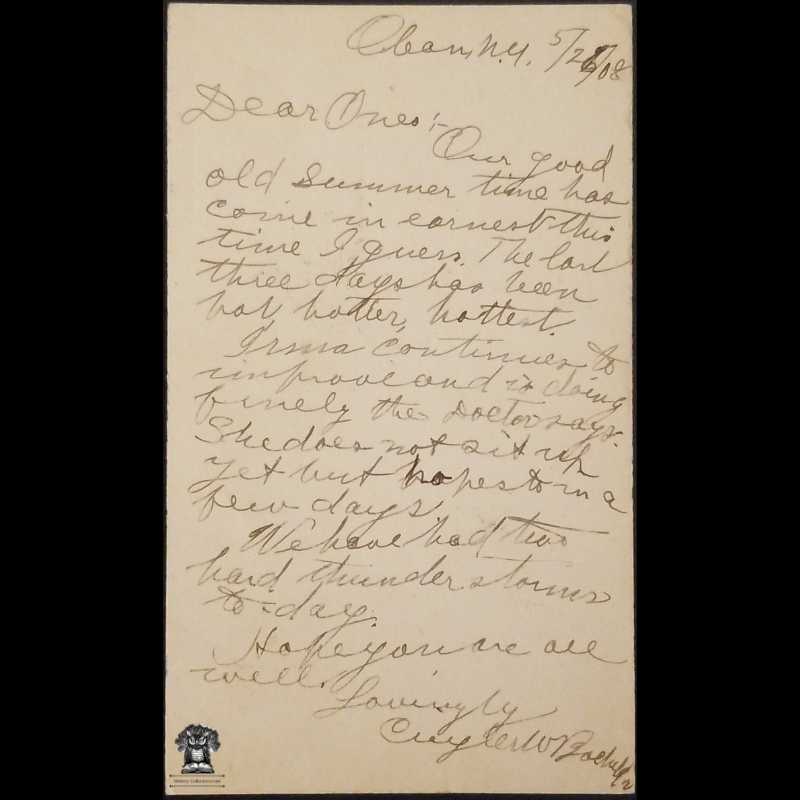 Olean, N.Y. 5/2 /08
Dear Ones:-
Our good
old summer time has
come in earnest this
time I guess. The last
three days has been
hot, hotter, hottest.
Irma continues to
improve and is doing
finely the Doctor says.
She does not sit up
yet but hopes to in a
few days.
We have had two
hard thunder storms
to-day.
Hope you are all
well.
Lovingly
Cuyler W